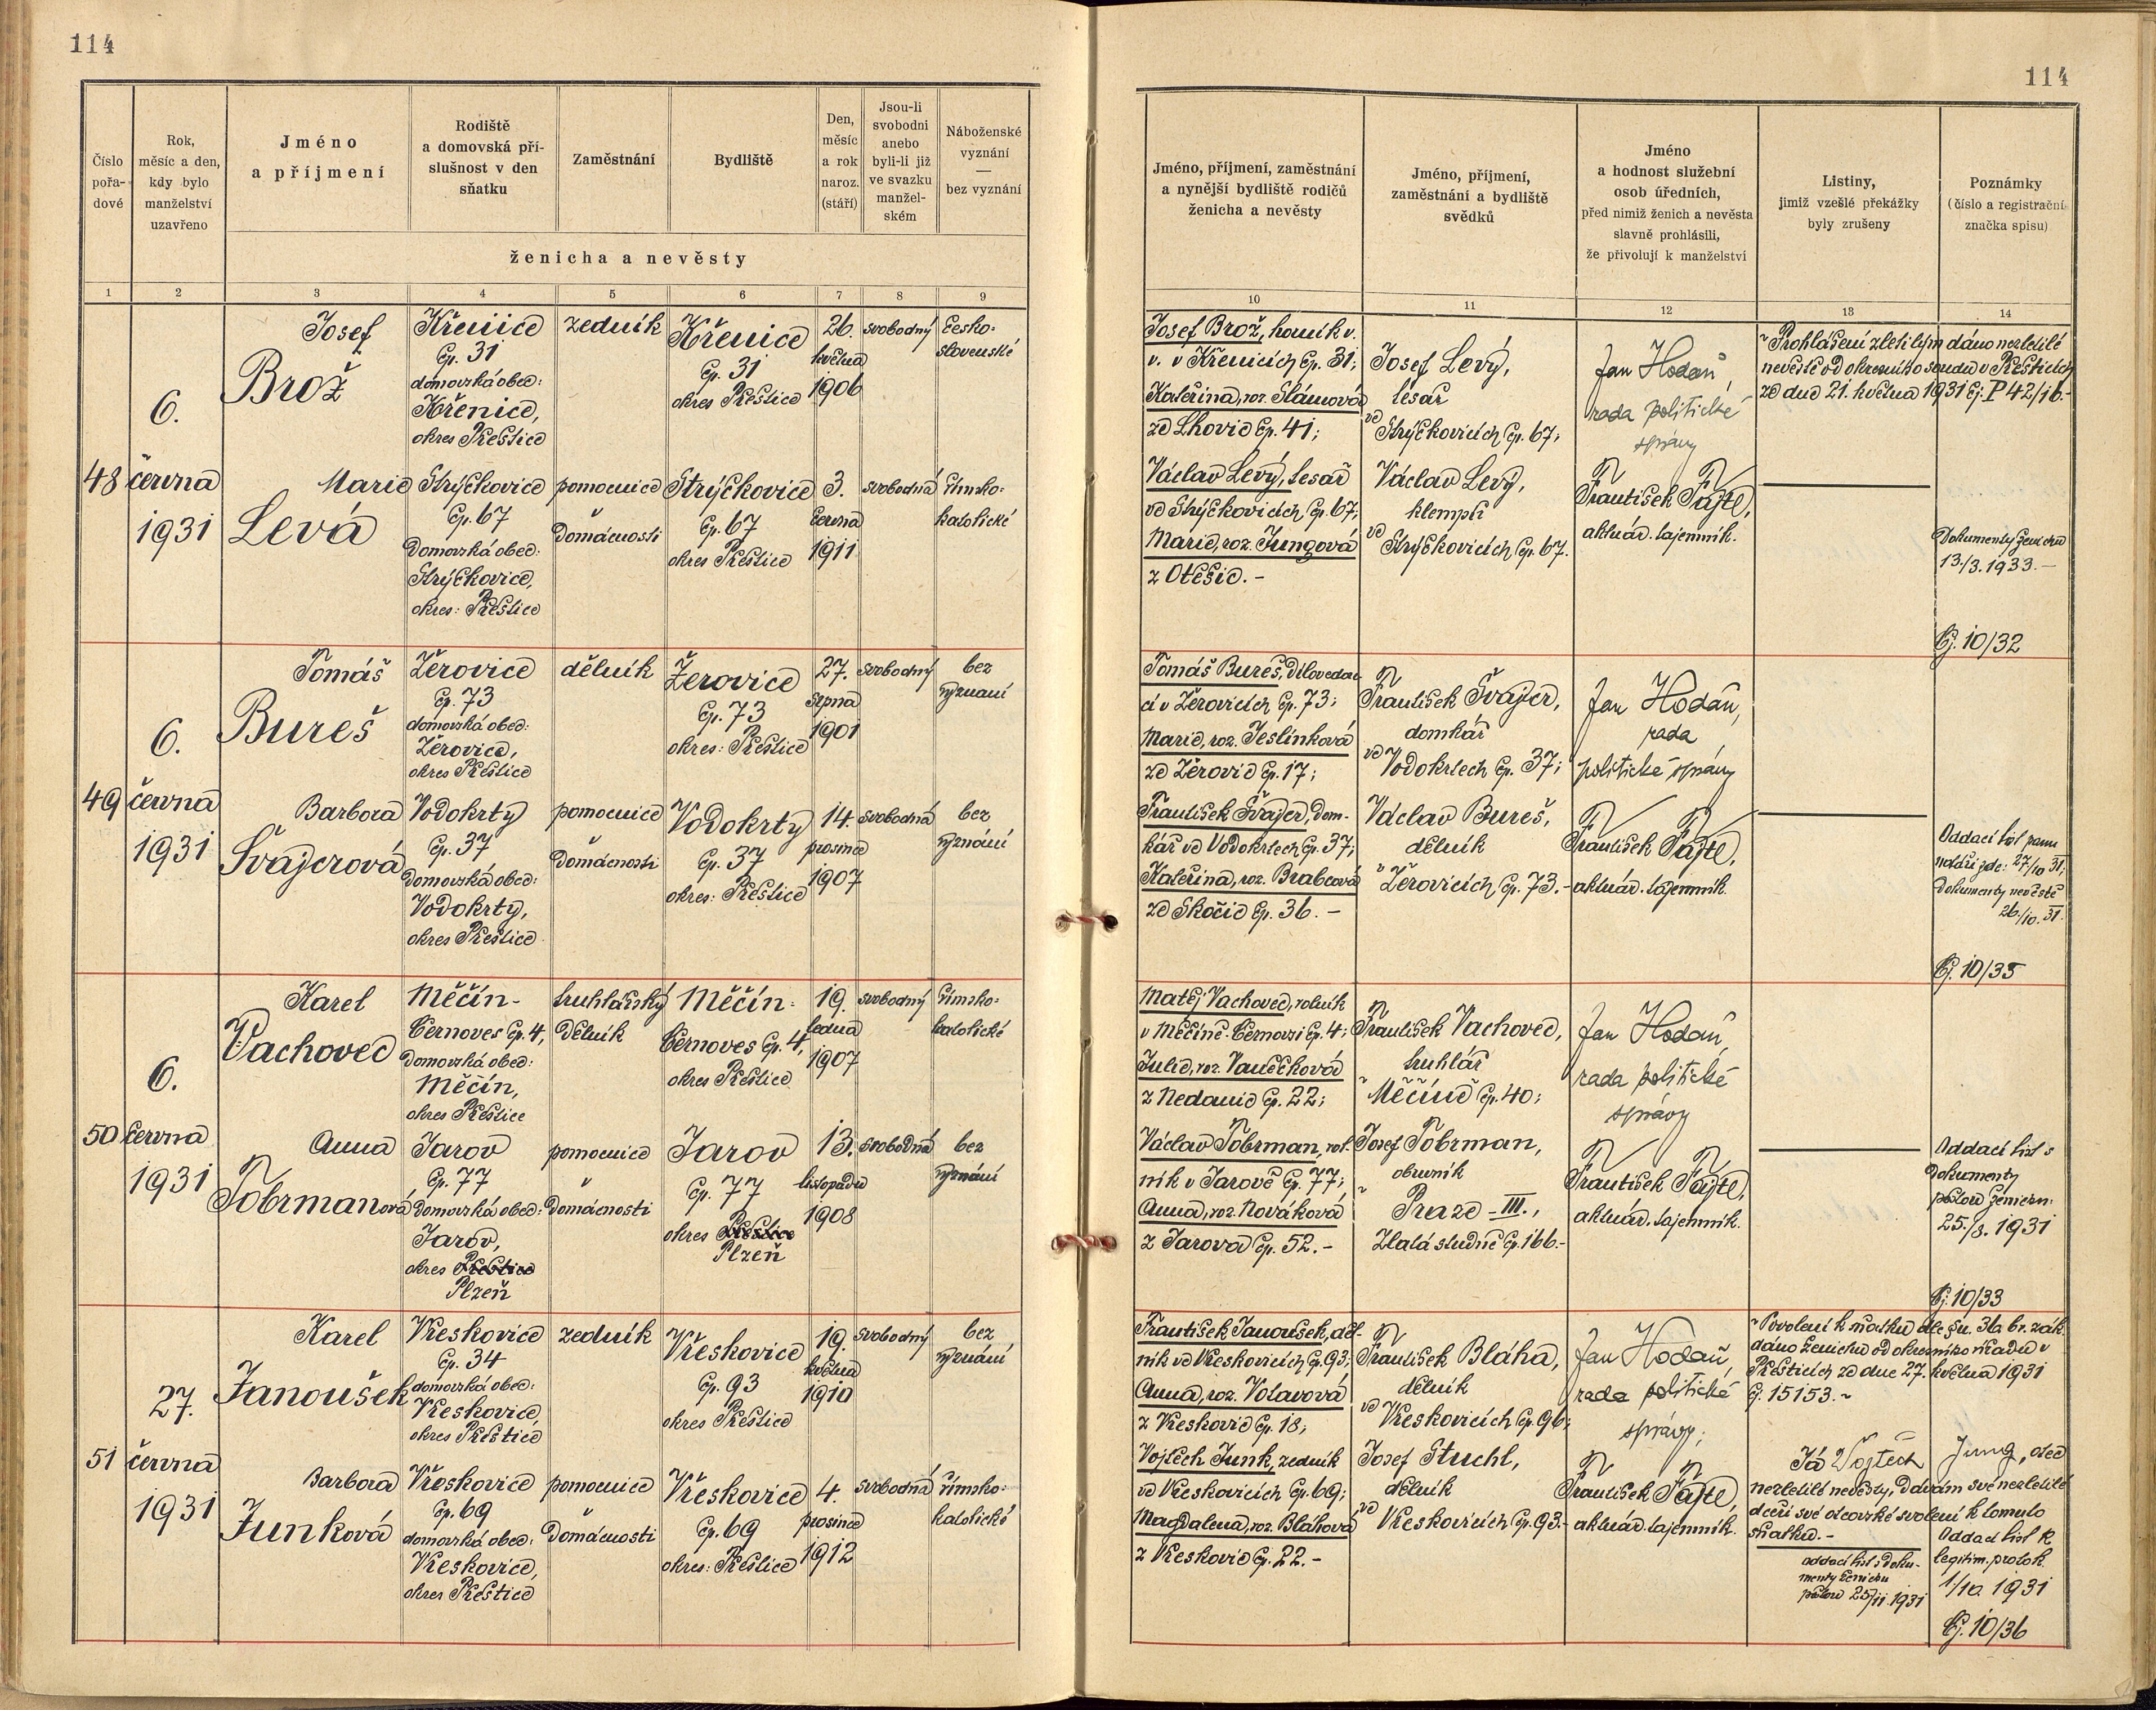 114
114
Číslo pořa- dové
Rok, měsíc a den, kdy bylo manželství uzavřeno
Jméno a příjmení
Rodiště a domovská pří- slušnost v den sňatku
Zaměstnání
Bydliště
Den, měsíc a rok naroz. (stáří)
Jsou-li svobodni anebo byli-li již ve svazku manžel- ském
Náboženské vyznání — bez vyznání
ženicha a nevěsty
Jméno, příjmení, zaměstnání a nynější bydliště rodičů ženicha a nevěsty
Jméno, příjmení, zaměstnání a bydliště svědků
Jméno a hodnost služební osob úředních, před nimiž ženich a nevěsta slavně prohlásili, že přivolují k manželství
Listiny, jimiž vzešlé překážky byly zrušeny
Poznámky (číslo a registrační značka spisu)
1 2 3 4 5 6 7 8 9 10 11 12 13 14
48
6.
června
1931
Josef
Brož
Křenice
čp. 31
domovská obec:
Křenice,
okres Přeštice
zedník
Křenice
čp. 31
okres Přeštice
26.
května
1906
svobodný
česko-
slovenské
Marie
Levá
Strýčkovice
čp. 67
domovská obec:
Strýčkovice,
okres: Přeštice
pomocnice
v
domácnosti
Strýčkovice
čp. 67
okres Přeštice
3.
června
1911
svobodná
římsko-
katolické
Josef Brož, horník v.
v. v Křenicích čp. 31;
Kateřina, roz. Slámová
ze Lhovic čp. 41;
Václav Levý, tesař
ve Strýčkovicích čp. 67;
Marie, roz. Jungová
z Otěšic. -
Josef Levý,
tesař
ve Strýčkovicích čp. 67;
Václav Levý,
klempíř
ve Strýčkovicích čp. 67.
Jan Hodaň,
rada politické
správy
František Fajtl,
aktuár. tajemník.
Prohlášení zletilým dáno nezletilé
nevěstě od okresního soudu v Přešticích
ze dne 21. května 1931 čj. P 42/16.-
Dokumenty ženichu
13./3. 1933. —
Čj. 10/32
49
6.
června
1931
Tomáš
Bureš
Žerovice
čp. 73
domovská obec:
Žerovice,
okres Přeštice
dělník
Žerovice
čp. 73
okres: Přeštice
27.
srpna
1901
svobodný
bez
vyznání
Barbora
Švajcrová
Vodokrty
čp. 37
domovská obec:
Vodokrty,
okres Přeštice
pomocnice
v
domácnosti
Vodokrty
čp. 37
okres: Přeštice
14.
prosince
1907
svobodná
bez
vyznání
Tomáš Bureš, dílovedou-
cí v Žerovicích čp. 73;
Marie, roz. Ješlínková
ze Žerovic čp. 17;
František Švajcr, dom-
kář ve Vodokrtech čp. 37;
Kateřina, roz. Brabcová
ze Skočic čp. 36. -
František Švajcr,
domkář
ve Vodokrtech čp. 37;
Václav Bureš,
dělník
v Žerovicích čp. 73.-
Jan Hodaň,
rada
politické správy
František Fajtl,
aktuár. tajemník.
Oddací list panu
notáři zde: 27/10 31;
dokumenty nevěstě
26./10. 31.
Čj. 10/35
50
6.
června
1931
Karel
Vachovec
Měčín-
Černoves čp. 4,
domovská obec:
Měčín,
okres Přeštice
truhlářský
dělník
Měčín-
Černoves čp. 4,
okres Přeštice
19.
ledna
1907
svobodný
římsko-
katolické
Anna
Tobrmanová
Jarov
čp. 77
domovská obec:
Jarov,
okres Přeštice
Plzeň
pomocnice
v
domácnosti
Jarov
čp. 77
okres Přeštice
Plzeň
13.
listopadu
1908
svobodná
bez
vyznání
Matěj Vachovec, rolník
v Měčíně-Černovsi čp. 4;
Julie, roz. Vaněčková
z Nedanic čp. 22;
Václav Tobrman, rol-
ník v Jarově čp. 77;
Anna, roz. Nováková
z Jarova čp. 52.-
František Vachovec,
truhlář
v Měčíně čp. 40;
Josef Tobrman,
obuvník
v Praze - III.,
Zlatá studně čp. 166.-
Jan Hodaň,
rada politické
správy
František Fajtl,
aktuár. tajemník.
Oddací list s
dokumenty
poštou ženichu:
25./8. 1931
Čj. 10/33
51
27.
června
1931
Karel
Janoušek
Vřeskovice
čp. 34
domovská obec:
Vřeskovice,
okres Přeštice
zedník
Vřeskovice
čp. 93
okres Přeštice
19.
května
1910
svobodný
bez
vyznání
Barbora
Junková
Vřeskovice
čp. 69
domovská obec:
Vřeskovice,
okres Přeštice
pomocnice
v
domácnosti
Vřeskovice
čp. 69
okres: Přeštice
4.
prosince
1912
svobodná
římsko-
katolické
František Janoušek, děl-
ník ve Vřeskovicích čp. 93;
Anna, roz. Votavová
z Vřeskovic čp. 18;
Vojtěch Junk, zedník
ve Vřeskovicích čp. 69;
Magdalena, roz. Bláhová
z Vřeskovic čp. 22.-
František Bláha,
dělník
ve Vřeskovicích čp. 96;
Josef Stuchl,
dělník
ve Vřeskovicích čp. 93.-
Jan Hodaň,
rada politické
správy;
František Fajtl,
aktuár. tajemník.
Povolení k sňatku dle § 36 br. zák.
dáno ženichu od okresního úřadu v
Přešticích ze dne 27. května 1931
čj. 15153.-
Já Vojtěch Jung, otec
nezletilé nevěsty, dávám své nezletilé
dceři své otcovské svolení k tomuto
sňatku.-
oddací list s doku-
menty ženichu
poštou 25/11 1931
Oddací list k
legitim. protok.
1/10 1931
Čj. 10/36